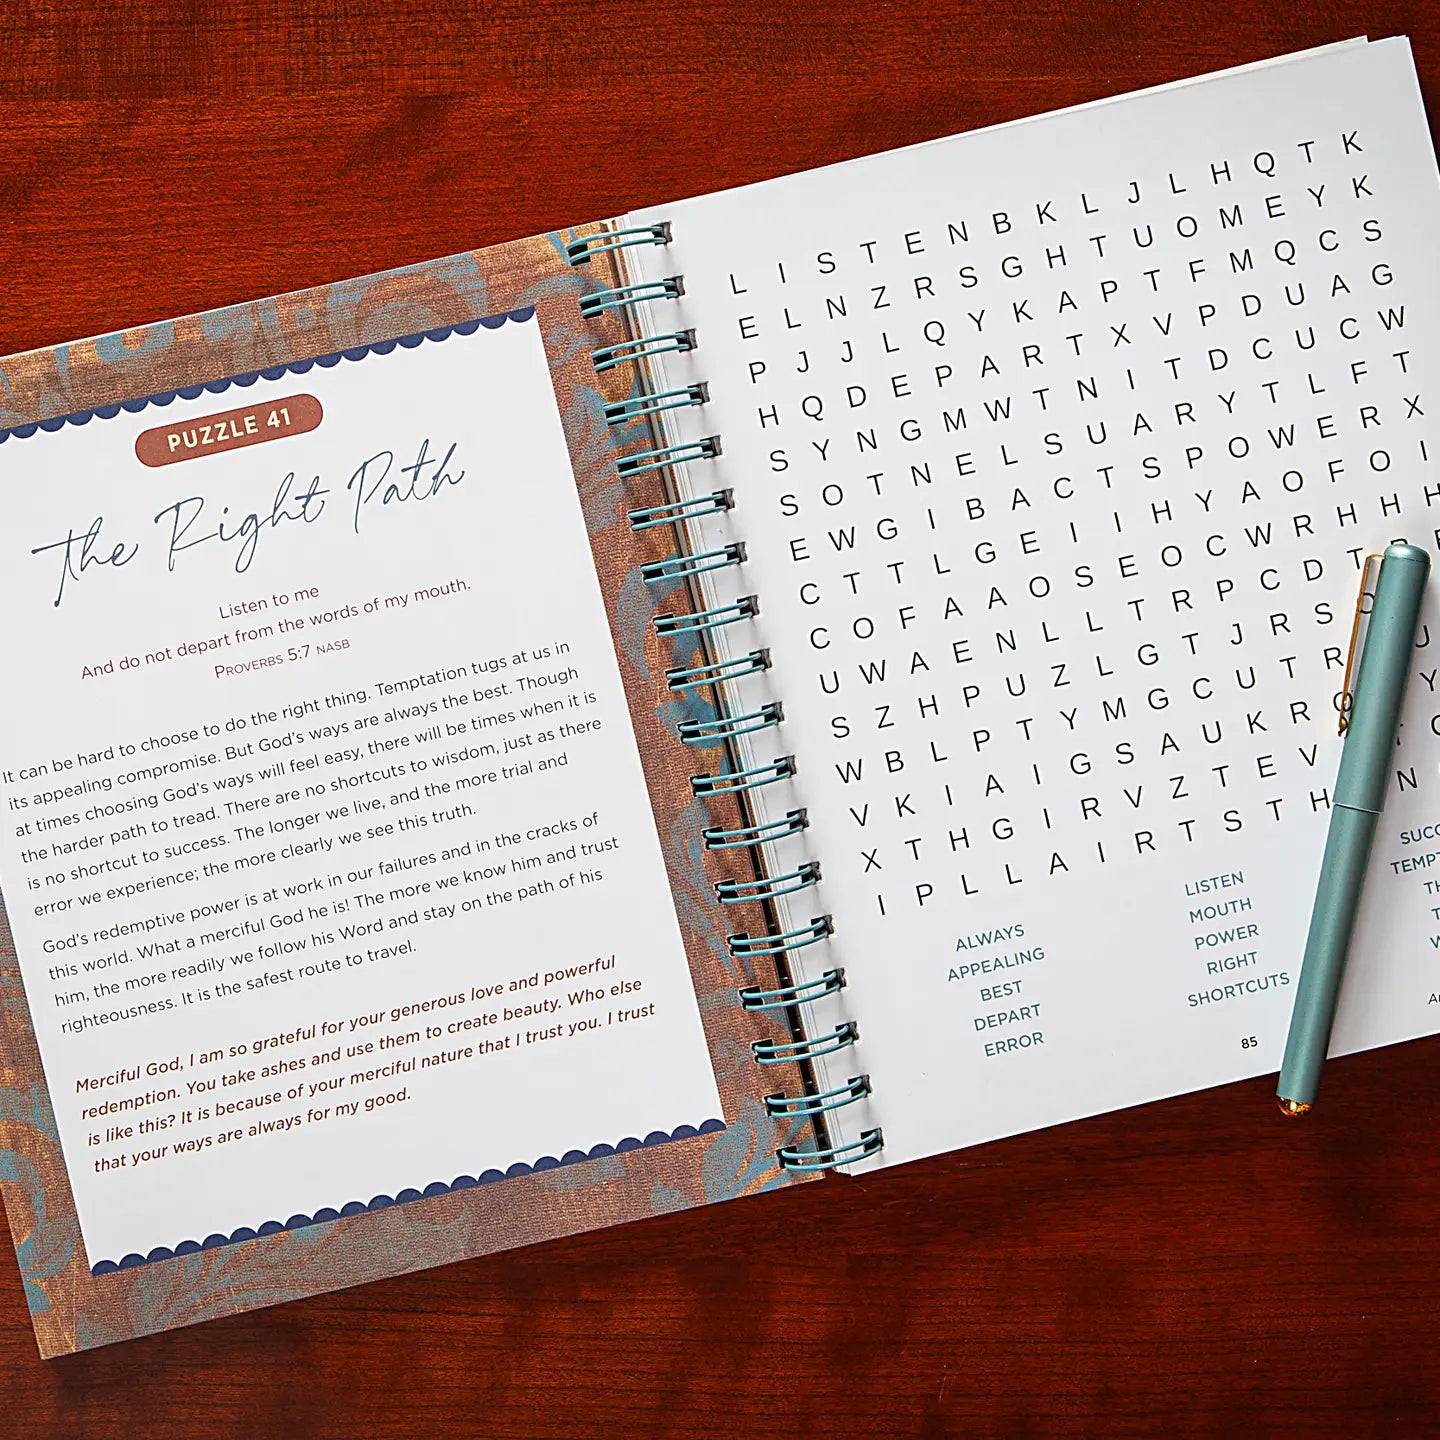 PUZZLE 41
the Right Path
Listen to me
And do not depart from the words of my mouth.
PROVERBS 5:7 NASB
It can be hard to choose to do the right thing. Temptation tugs at us in
its appealing compromise. But God's ways are always the best. Though
at times choosing God's ways will feel easy, there will be times when it is
the harder path to tread. There are no shortcuts to wisdom, just as there
is no shortcut to success. The longer we live, and the more trial and
error we experience; the more clearly we see this truth.
God's redemptive power is at work in our failures and in the cracks of
this world. What a merciful God he is! The more we know him and trust
him, the more readily we follow his Word and stay on the path of his
righteousness. It is the safest route to travel.
Merciful God, I am so grateful for your generous love and powerful
redemption. You take ashes and use them to create beauty. Who else
is like this? It is because of your merciful nature that I trust you. I trust
that your ways are always for my good.
L I S T E N B K L J L H Q T K
E L N Z R S G H T U O M E Y K
P J J L Q Y K A P T F M Q C S
H Q D E P A R T X V P D U A G
S Y N G M W T N I T D C U C W
S O T N E L S U A R Y T L F T
E W G I B A C T S P O W E R X
C T T L G E I I H Y A O F O I
C O F A A O S E O C W R H H H
U W A E N L L T R P C D T
S Z H P U Z L G T J R S
W B L P T Y M G C U T R
V K I A I G S A U K R Y
X T H G I R V Z T E V
I P L L A I R T S T H N
ALWAYS
APPEALING
BEST
DEPART
ERROR
LISTEN
MOUTH
POWER
RIGHT
SHORTCUTS
85